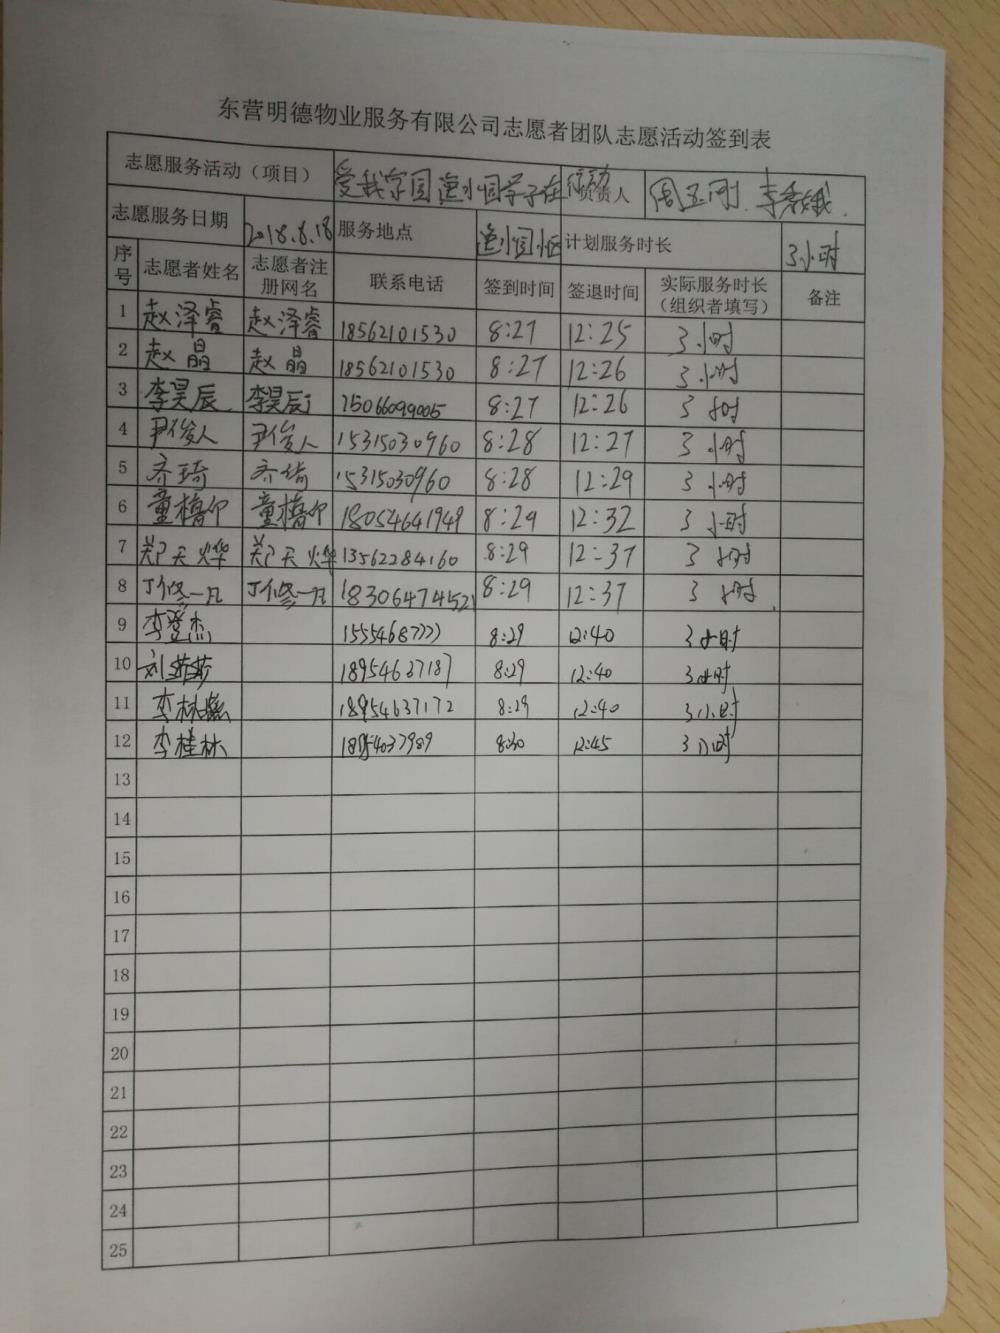 东营明德物业服务有限公司志愿者团队志愿活动签到表
志愿服务活动（项目） 负责人 周玉刚 李秀娥
志愿服务日期 2018.8.18 服务地点 计划服务时长 3小时
序号 志愿者姓名 志愿者注册网名 联系电话 签到时间 签退时间 实际服务时长（组织者填写） 备注
1 赵泽睿 赵泽睿 18562101530 8:27 12:25 3小时
2 赵晶 赵晶 18562101530 8:27 12:26 3小时
3 李昊辰 李昊辰 15066099005 8:27 12:26 3小时
4 尹俊人 尹俊人 15315030960 8:28 12:27 3小时
5 齐琦 齐琦 15315030960 8:28 12:29 3小时
6 18054641949 8:29 12:32 3小时
7 郑天烨 郑天烨 13562284160 8:29 12:37 3小时
8 丁修一凡 丁修一凡 18306474521 8:29 12:37 3小时
9 李登杰 15554687777 8:29 12:40 3小时
10 刘莎莎 18954637187 8:29 12:40 3小时
11 18954637172 8:29 12:40 3小时
12 李桂林 8:30 12:45 3小时
13
14
15
16
17
18
19
20
21
22
23
24
25